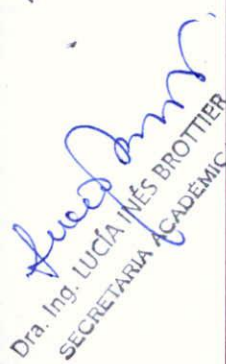 Dra. Ing. LUCÍA INÉS BROTTIER
SECRETARIA ACADÉMICA